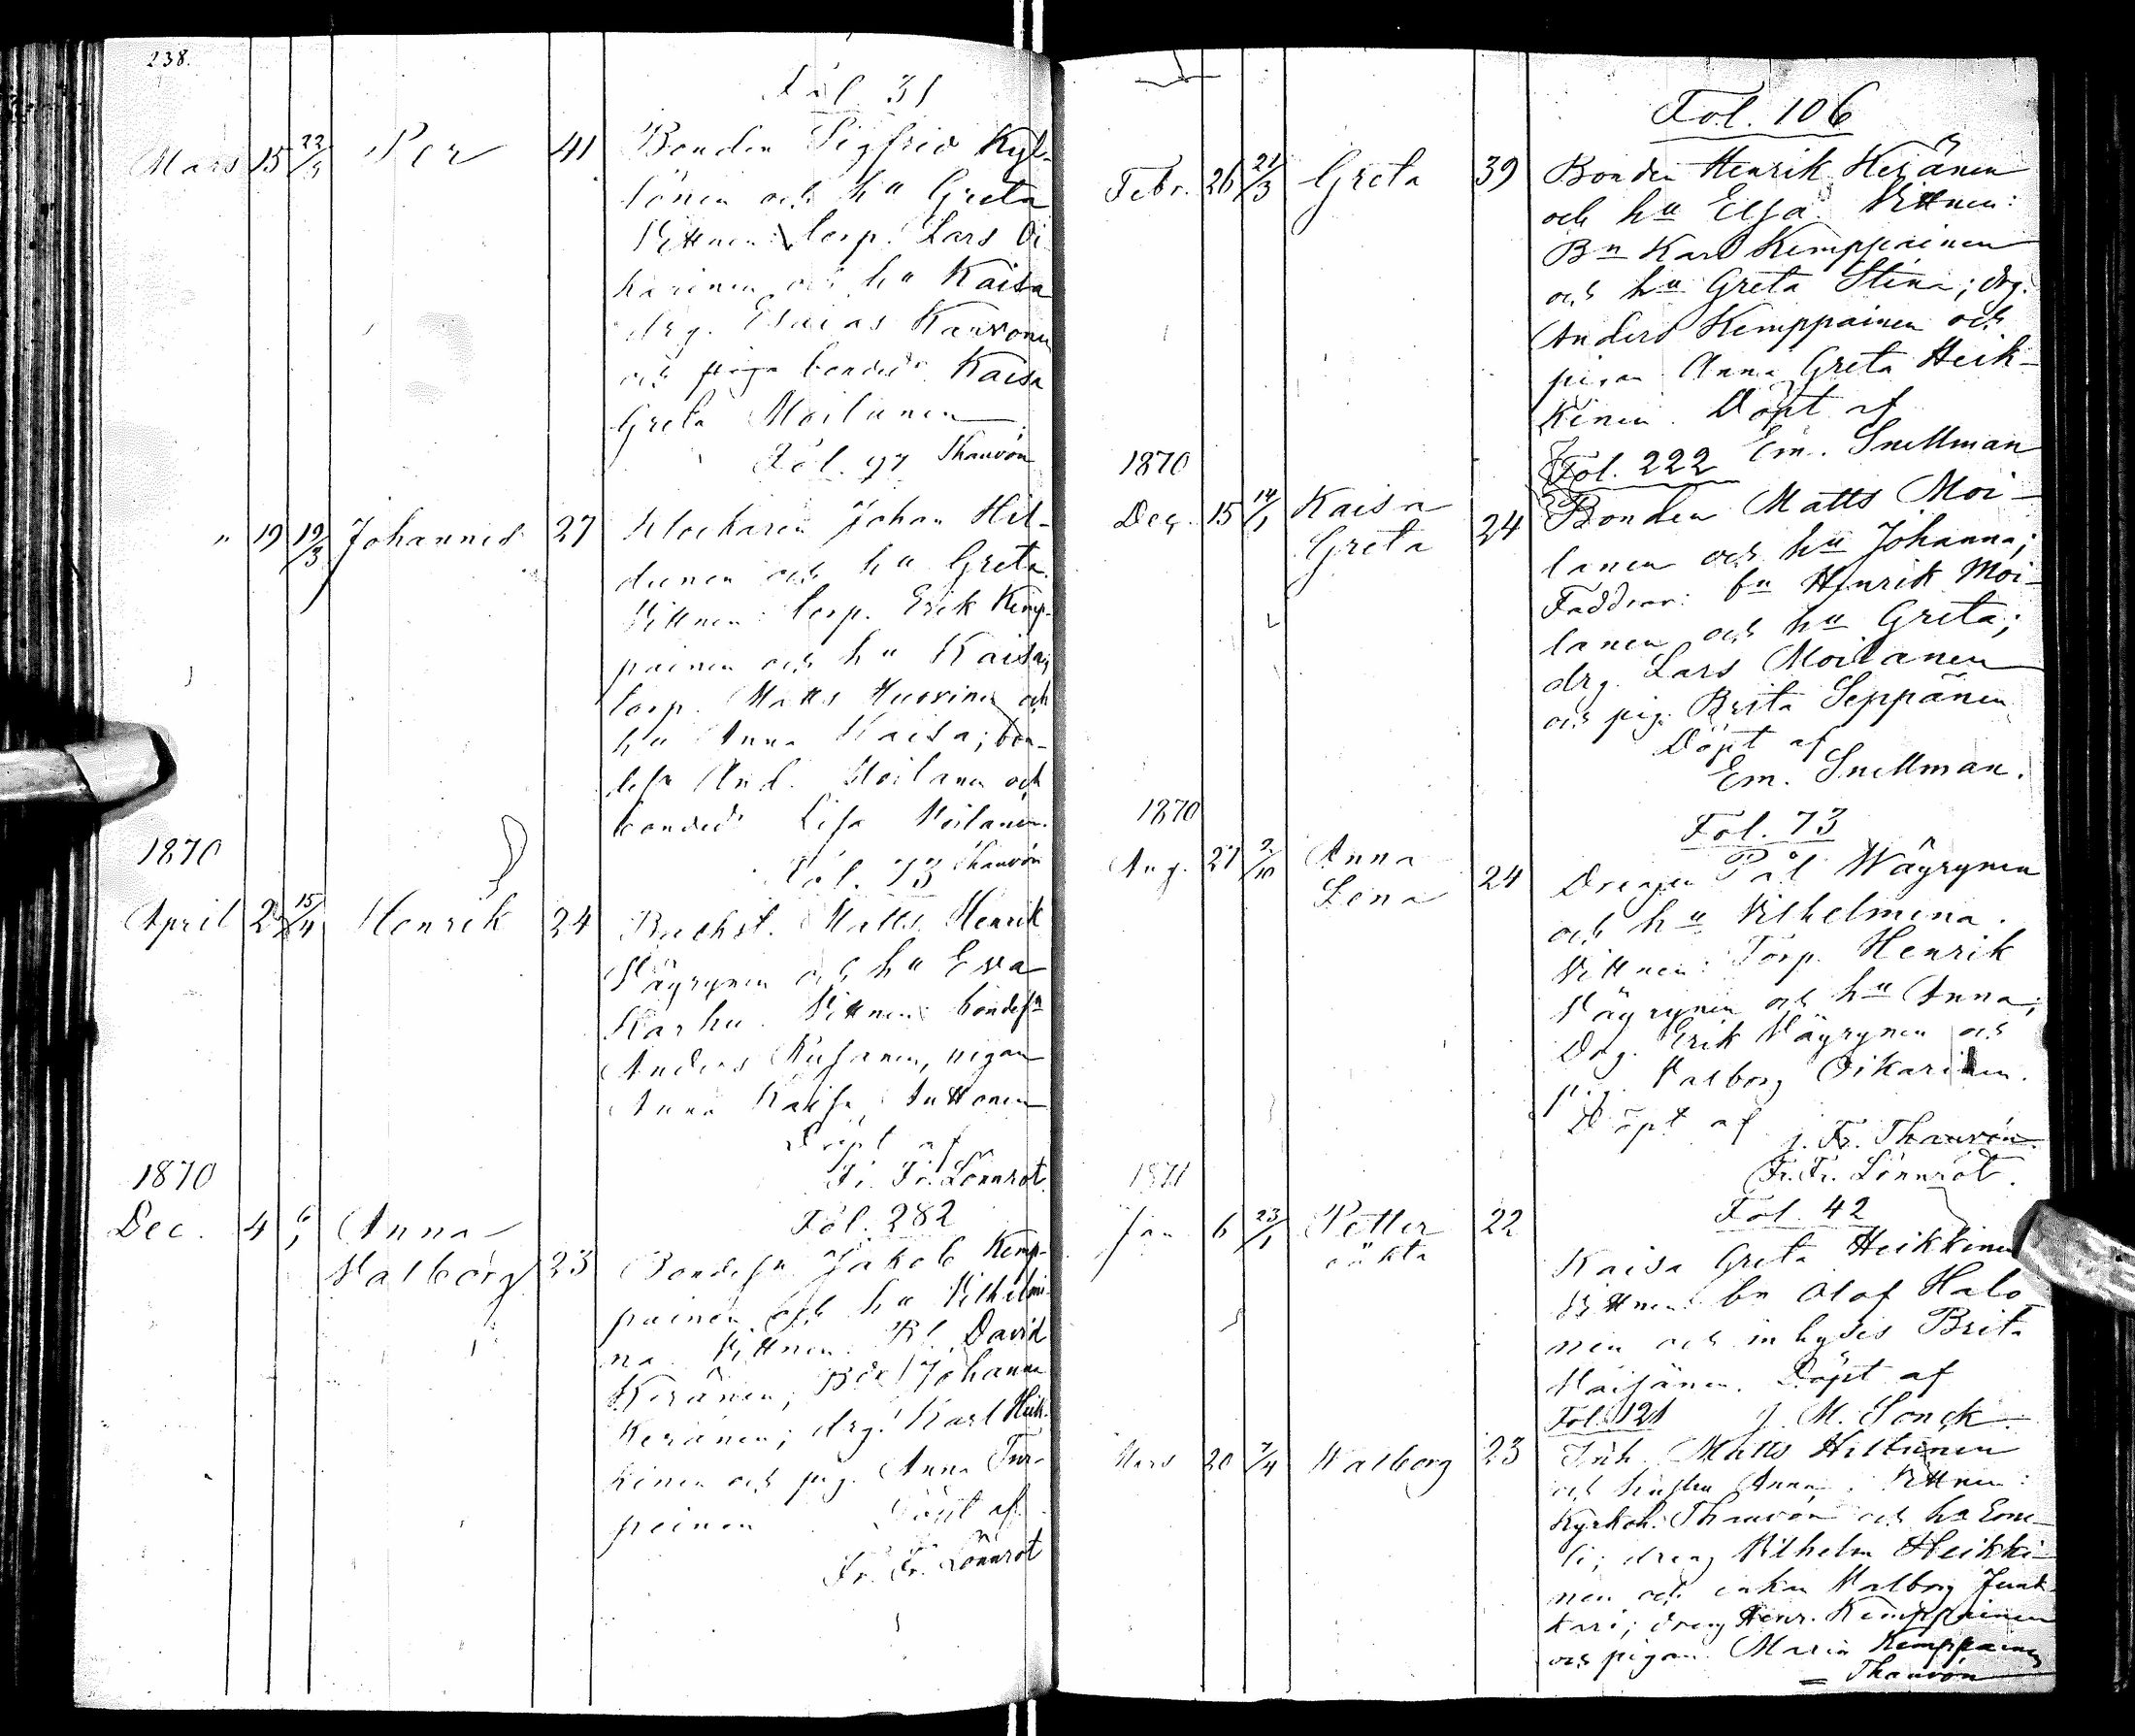 238.
Fol. 31
Mars 15 22/3 Per 41 Bonden Sigfrid Kyl-
lönen och hu Greta
Vittnen: torp. Lars Oi
karinen och hu Kaisa
drg. Esaias Karvonen
och piga bonded. Kaisa
Greta Moilanen
Fol. 97 Thauvón
" 19 19/3 Johannes 27 Klockaren Johan Hil-
dunen och hu Greta.
Vittnen: torp. Erik Kemp-
painen och hu Kaisa;
torp. Matts Huovinen och
hu Anna Kaisa; bon-
desn And. Moilanen och
bonded. Lisa Moilanen.
Fol. 73 Thauvón
1870
April 2 15/4 Henrik 24 Backst. Matts Henrik
Väyrynen och hu Eva
Karhu. Vittnen: bondesn
Anders pigan
Anna Kaisa Anttonen
Döpt af
Fr. Fr. Lönnrot.
1870
Fol. 282
Dec. 4 Anna
Valborg 23 Bondesn Jakob Kemp-
painen och hu Vilhelmi-
na. Vittnen: David
Keränen; Johanna
Keränen; drg. Karl Heik-
kinen och pig. Anna Tur-
peinen Döpt af
Fr. Fr. Lönnrot
Fol. 106
Febr. 26 21/3 Greta 39 Bonden Henrik Keränen
och hu Elsa. Vittnen:
Bn Karl Kemppainen
och hu Greta Stina; drg.
Anders Kemppainen och
pigan Anna Greta Heik-
kinen. Döpt af
Em. Snellman
1870
Fol. 222
Dec. 15 14/1 Kaisa
Greta 24 Bonden Matts Moi-
lanen och hu Johanna;
Faddrar: bn Henrik Moi-
lanen och hu Greta;
drg. Lars Moilanen
och pig. Brita Seppänen
Döpt af
Em. Snellman.
1870
Fol. 73
Aug. 27 2/10 Anna
Lena 24 Drengen Pål Wäyrynen
och hu Vilhelmina.
Vittnen: Torp. Henrik
Väyrynen och hu Anna;
Drg. Erik Väyrynen och
pig. Valborg Oikarinen.
Döpt af
J. Fr. Thauvón.
Fr. Fr. Lönnrot.
1871
Fol. 42
Jan 6 23/1 Petter
oäkta 22 Kaisa Greta Heikkinen
Vittnen: bn Olof Halo
nen och inhyses Brita
Väisänen. Döpt af
Fol. 121 J. M. Sonck.
Mars 20 7/4 Walborg 23 Inh. Matts Hiltunen
och hustru Anna. Vittnen:
Kyrkoh. Thauvón och hu Eme-
li; dreng Vilhelm Heikki-
nen och enkan Valborg Junt-
tari; dreng Henr. Kemppainen
och pigan Maria Kemppainen
= Thauvón